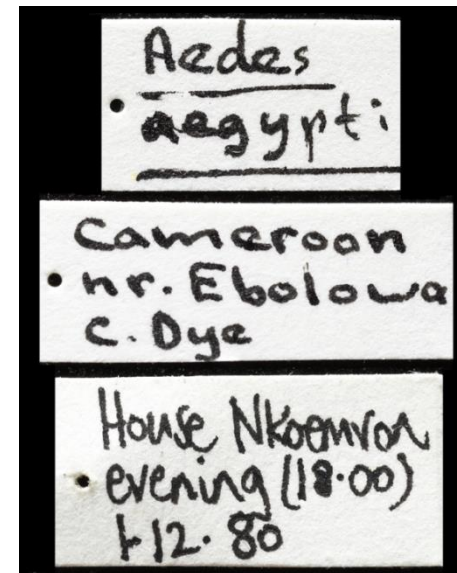 Aedes
aegypti
Cameroon
nr. Ebolowa
C. Dye
House Nkoemvon
evening (18.00)
1-12.80